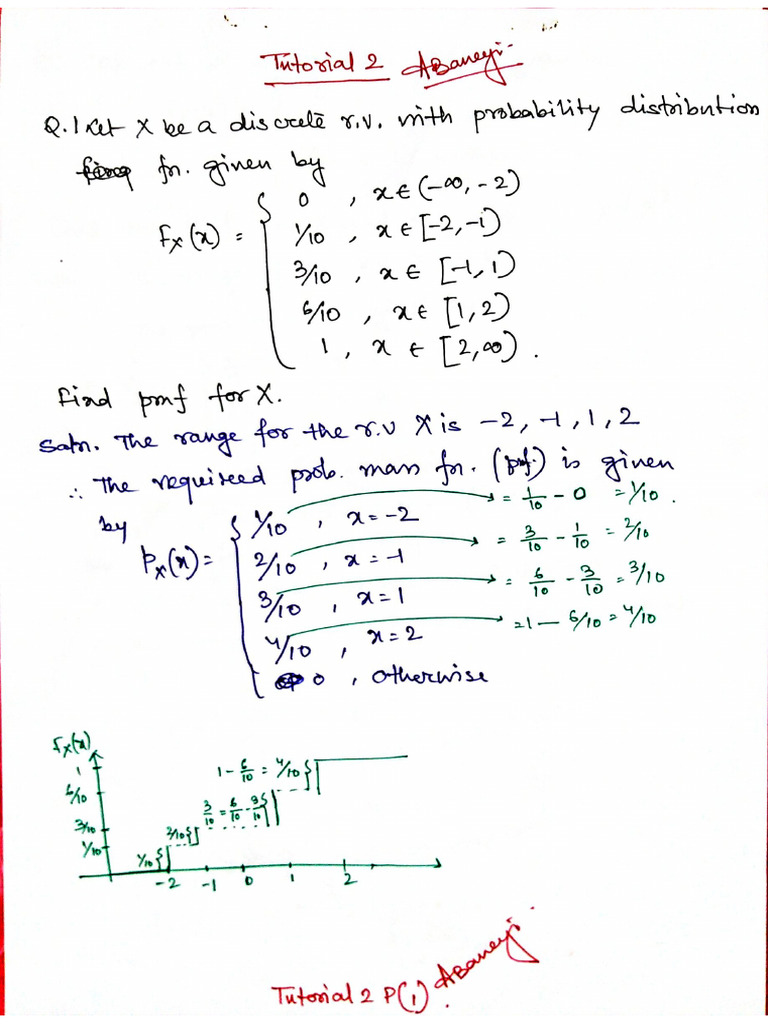 Tutorial 2 ABanerji
Q.1 Let X be a discrete r.v. with probability distribution
fn. given by
F_X(x) = { 0 , x ∈ (-∞, -2)
1/10 , x ∈ [-2, -1)
3/10 , x ∈ [-1, 1)
6/10 , x ∈ [1, 2)
1 , x ∈ [2, ∞) .
Find pmf for X.
Soln. The range for the r.v X is -2, -1, 1, 2
∴ The requireed prob. mass fn. (pmf.) is given
by
p_X(x) = { 1/10 , x = -2 = 1/10 - 0 = 1/10 .
2/10 , x = -1 = 3/10 - 1/10 = 2/10
3/10 , x = 1 = 6/10 - 3/10 = 3/10
4/10 , x = 2 = 1 - 6/10 = 4/10
0 , otherwise
F_X(x)
1
1 - 6/10 = 4/10 }
6/10
3/10 = 6/10 - 3/10 {
3/10
2/10 {
1/10
1/10 {
-2 -1 0 1 2
Tutorial 2 P(1) ABanerji